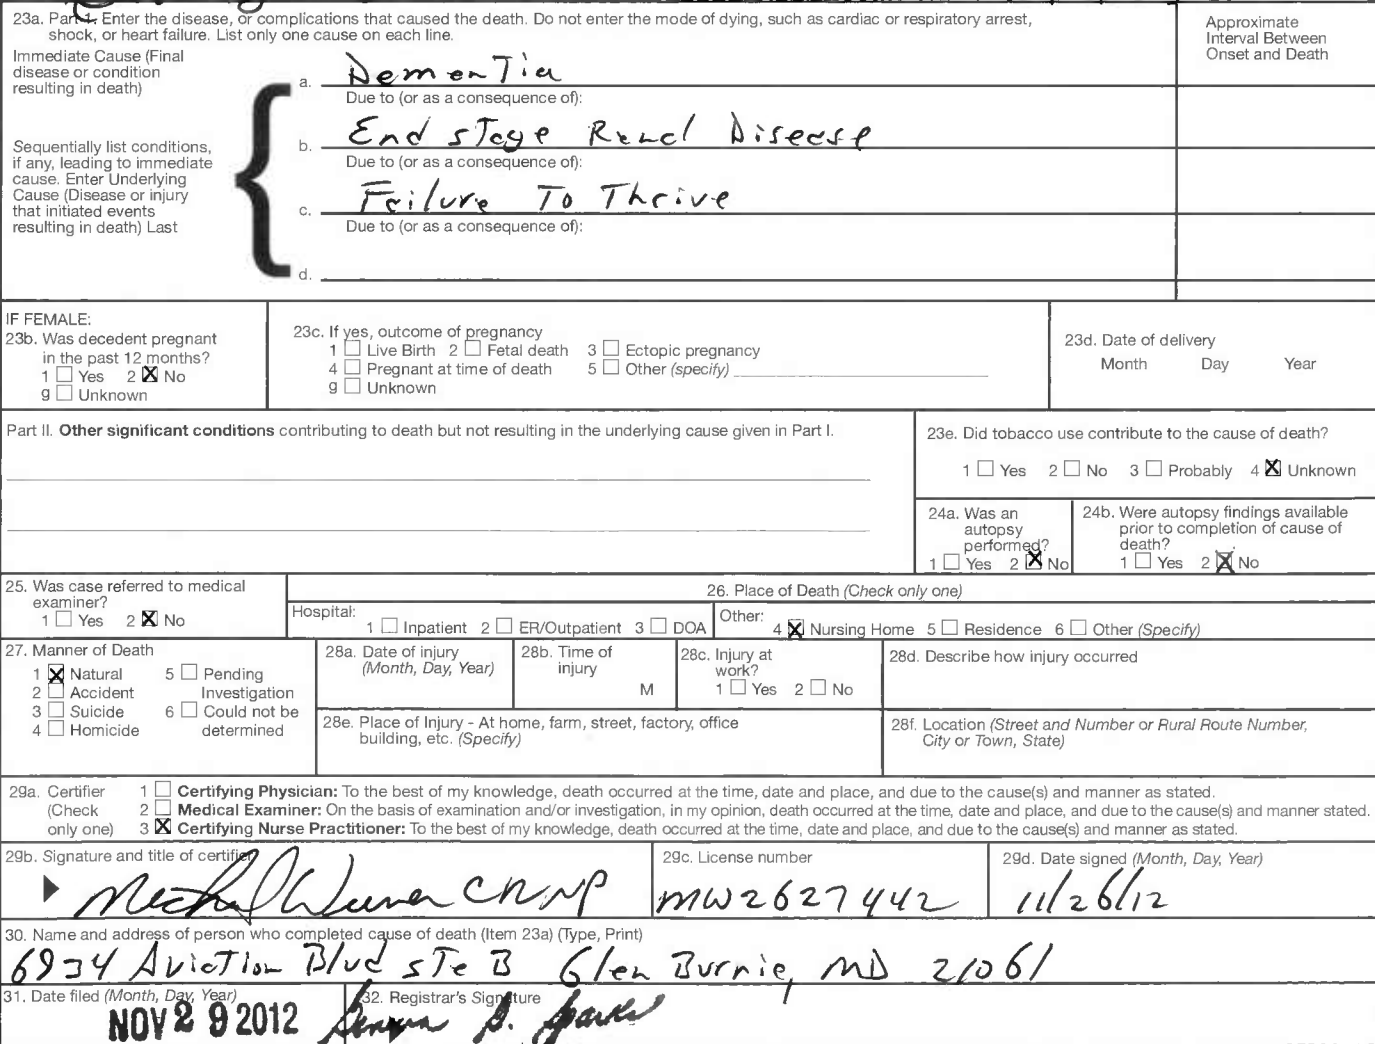 23a. Part 1. Enter the disease, or complications that caused the death. Do not enter the mode of dying, such as cardiac or respiratory arrest,
shock, or heart failure. List only one cause on each line.
Approximate
Interval Between
Onset and Death
Immediate Cause (Final
disease or condition
resulting in death)
a. Dementia
Due to (or as a consequence of):
Sequentially list conditions,
if any, leading to immediate
cause. Enter Underlying
Cause (Disease or injury
that initiated events
resulting in death) Last
b. End stage Renal Disease
Due to (or as a consequence of):
c. Failure To Thrive
Due to (or as a consequence of):
d.
IF FEMALE:
23b. Was decedent pregnant
in the past 12 months?
1 ☐ Yes 2 ☒ No
9 ☐ Unknown
23c. If yes, outcome of pregnancy
1 ☐ Live Birth 2 ☐ Fetal death 3 ☐ Ectopic pregnancy
4 ☐ Pregnant at time of death 5 ☐ Other (specify)
9 ☐ Unknown
23d. Date of delivery
Month Day Year
Part II. Other significant conditions contributing to death but not resulting in the underlying cause given in Part I.
23e. Did tobacco use contribute to the cause of death?
1 ☐ Yes 2 ☐ No 3 ☐ Probably 4 ☒ Unknown
24a. Was an
autopsy
performed?
1 ☐ Yes 2 ☒ No
24b. Were autopsy findings available
prior to completion of cause of
death?
1 ☐ Yes 2 ☒ No
25. Was case referred to medical
examiner?
1 ☐ Yes 2 ☒ No
26. Place of Death (Check only one)
Hospital: 1 ☐ Inpatient 2 ☐ ER/Outpatient 3 ☐ DOA
Other: 4 ☒ Nursing Home 5 ☐ Residence 6 ☐ Other (Specify)
27. Manner of Death
1 ☒ Natural 5 ☐ Pending
2 ☐ Accident Investigation
3 ☐ Suicide 6 ☐ Could not be
4 ☐ Homicide determined
28a. Date of injury
(Month, Day, Year)
28b. Time of
injury
M
28c. Injury at
work?
1 ☐ Yes 2 ☐ No
28d. Describe how injury occurred
28e. Place of Injury - At home, farm, street, factory, office
building, etc. (Specify)
28f. Location (Street and Number or Rural Route Number,
City or Town, State)
29a. Certifier
(Check
only one)
1 ☐ Certifying Physician: To the best of my knowledge, death occurred at the time, date and place, and due to the cause(s) and manner as stated.
2 ☐ Medical Examiner: On the basis of examination and/or investigation, in my opinion, death occurred at the time, date and place, and due to the cause(s) and manner stated.
3 ☒ Certifying Nurse Practitioner: To the best of my knowledge, death occurred at the time, date and place, and due to the cause(s) and manner as stated.
29b. Signature and title of certifier
CRNP
29c. License number
MW2627442
29d. Date signed (Month, Day, Year)
11/26/12
30. Name and address of person who completed cause of death (Item 23a) (Type, Print)
6934 Aviation Blvd Ste B Glen Burnie, MD 21061
31. Date filed (Month, Day, Year)
NOV 29 2012
32. Registrar's Signature